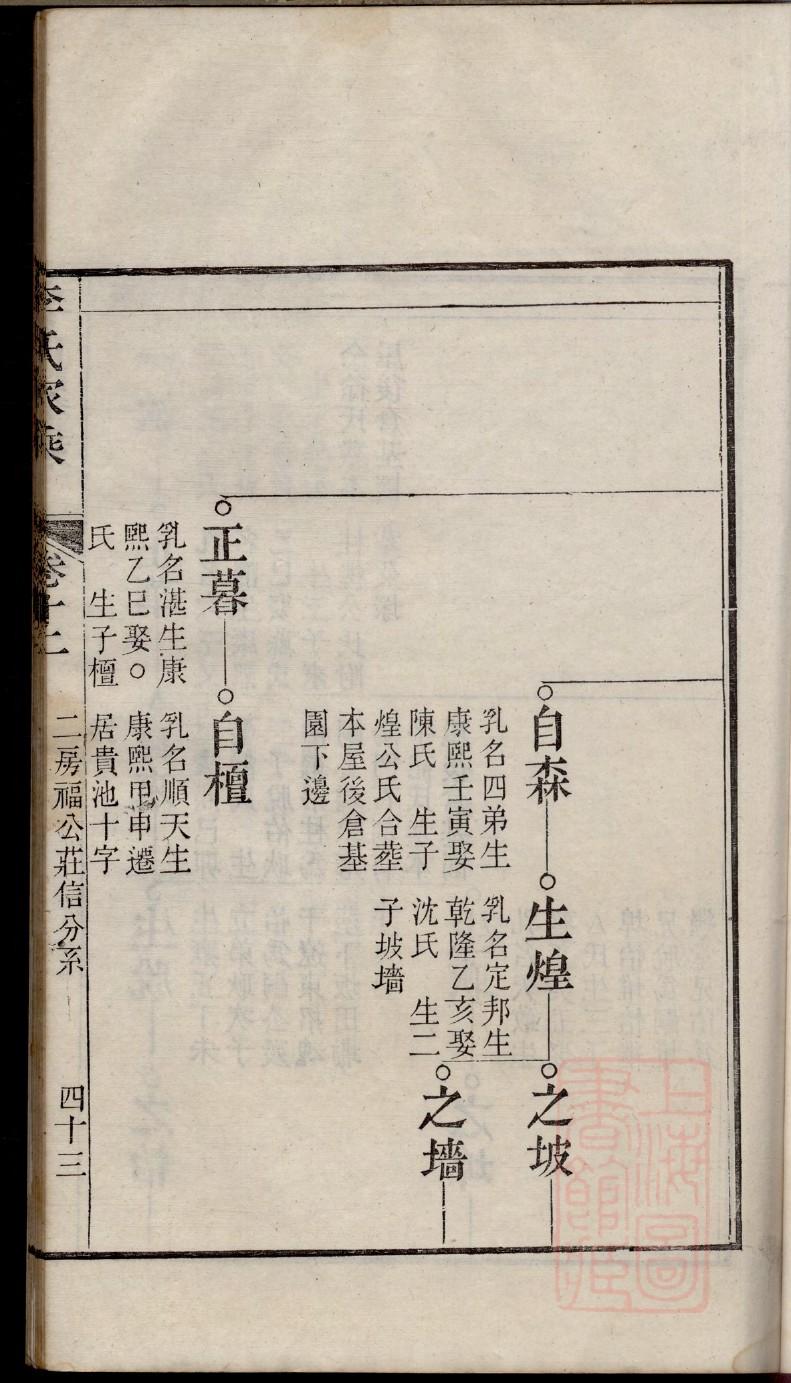 自森
乳名四弟生
康熙壬寅娶
陳氏　生子
煌公氏合塟
本屋後倉基
園下邊
生煌
乳名定邦生
乾隆乙亥娶
沈氏　生二
子坡墻
之坡
之墻
正暮
乳名湛生康
熙乙巳娶○
氏　生子檀
自檀
乳名順天生
康熙甲申遷
居貴池十字
李氏家乘
卷十二
二房福公莊信分系
四十三
上海圖書館藏